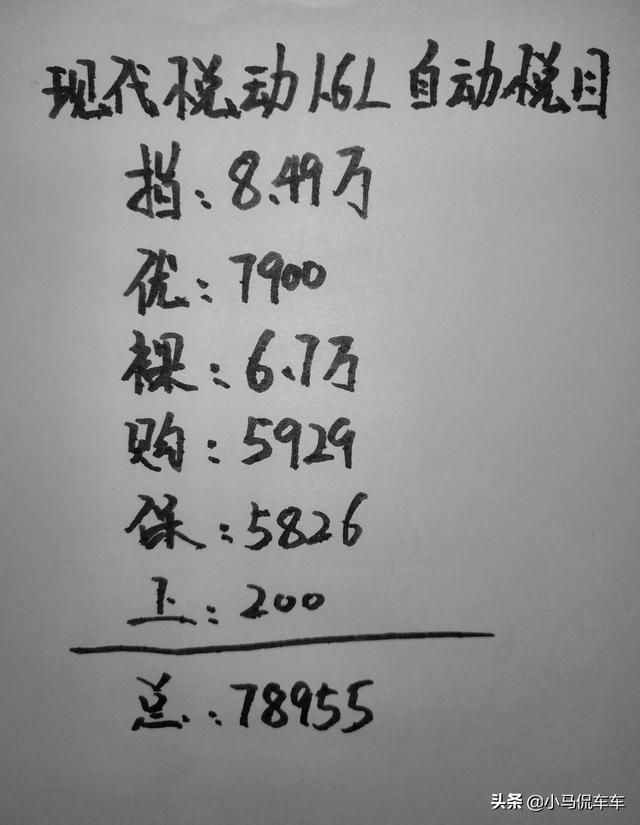 现代悦动1.6L 自动悦目
指：8.49万
优：7900
裸：6.7万
购：5929
保：5826
上：200
总：78955
头条 @小马侃车车